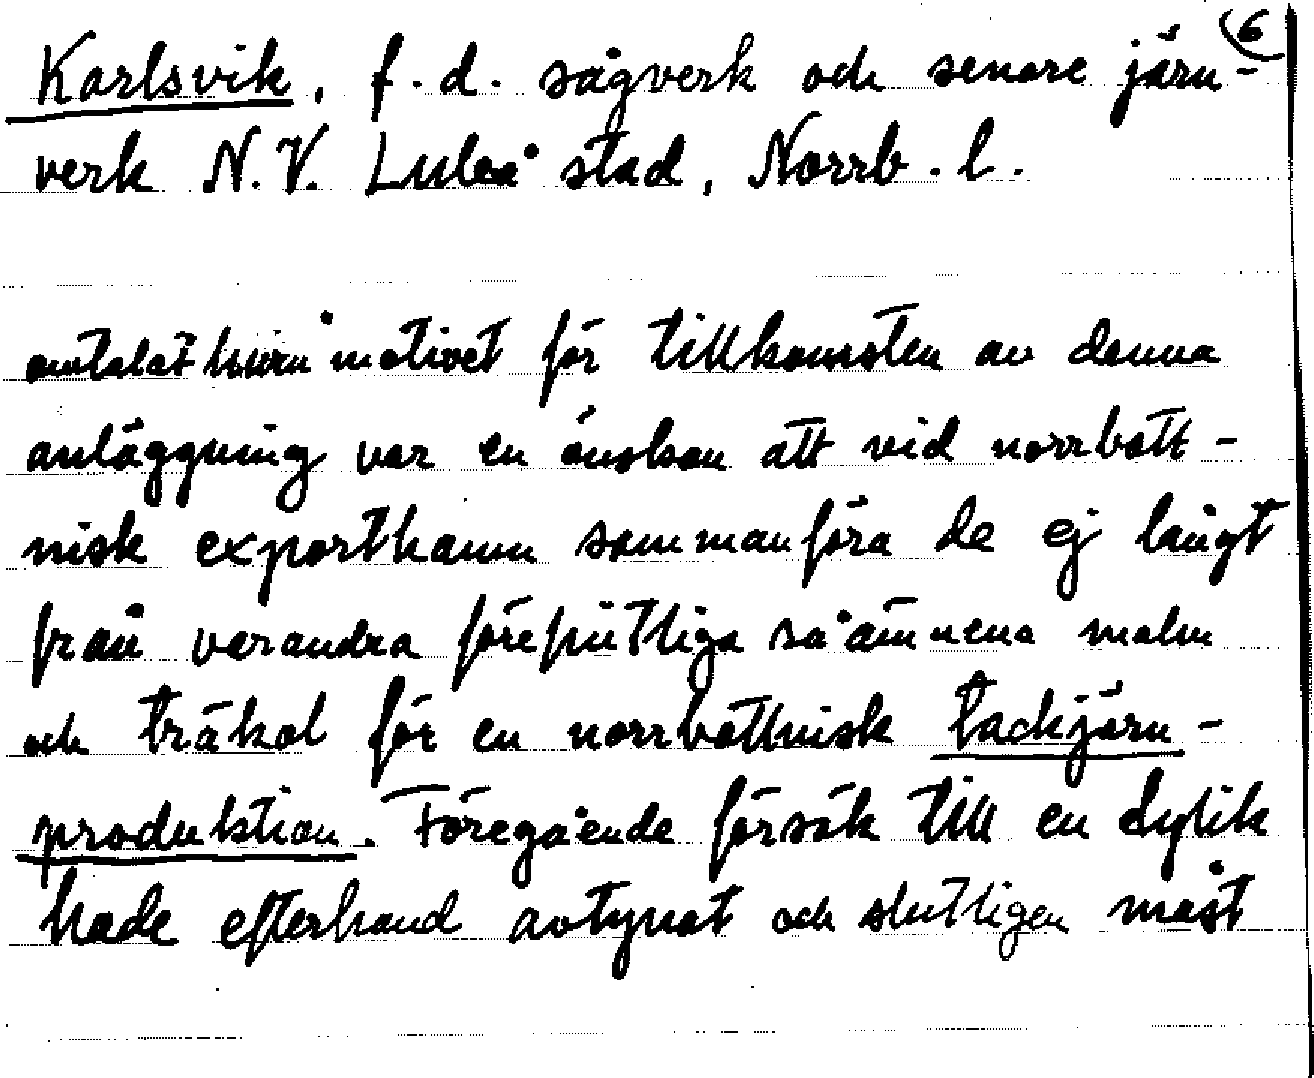 6
Karlsvik, f.d. sågverk och senare järn-
verk N.V. Luleå stad, Norrb. l.
omtalat huru motivet för tillkomsten av denna
anläggning var en önskan att vid norrbott-
nisk exporthamn sammanföra de ej långt
från varandra förefintliga råämnena malm
och träkol för en norrbottnisk tackjärn-
produktion. Föregående försök till en dylik
hade efterhand avtynat och slutligen måst